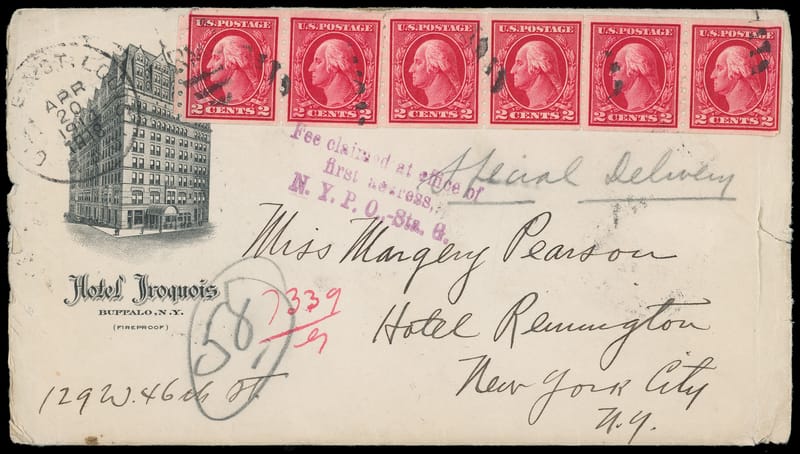 U.S. POSTAGE U.S. POSTAGE U.S. POSTAGE U.S. POSTAGE U.S. POSTAGE U.S. POSTAGE
2 CENTS 2 2 CENTS 2 2 CENTS 2 2 CENTS 2 2 CENTS 2 2 CENTS 2
APR
20
Fee claimed at office of
first address,
N. Y. P. O., Sta. G.
Special Delivery
Miss Margery Pearson
Hotel Iroquois
BUFFALO, N.Y.
(FIREPROOF)
58
7339
Hotel Remington
129 W. 46th St.
New York City
N.Y.